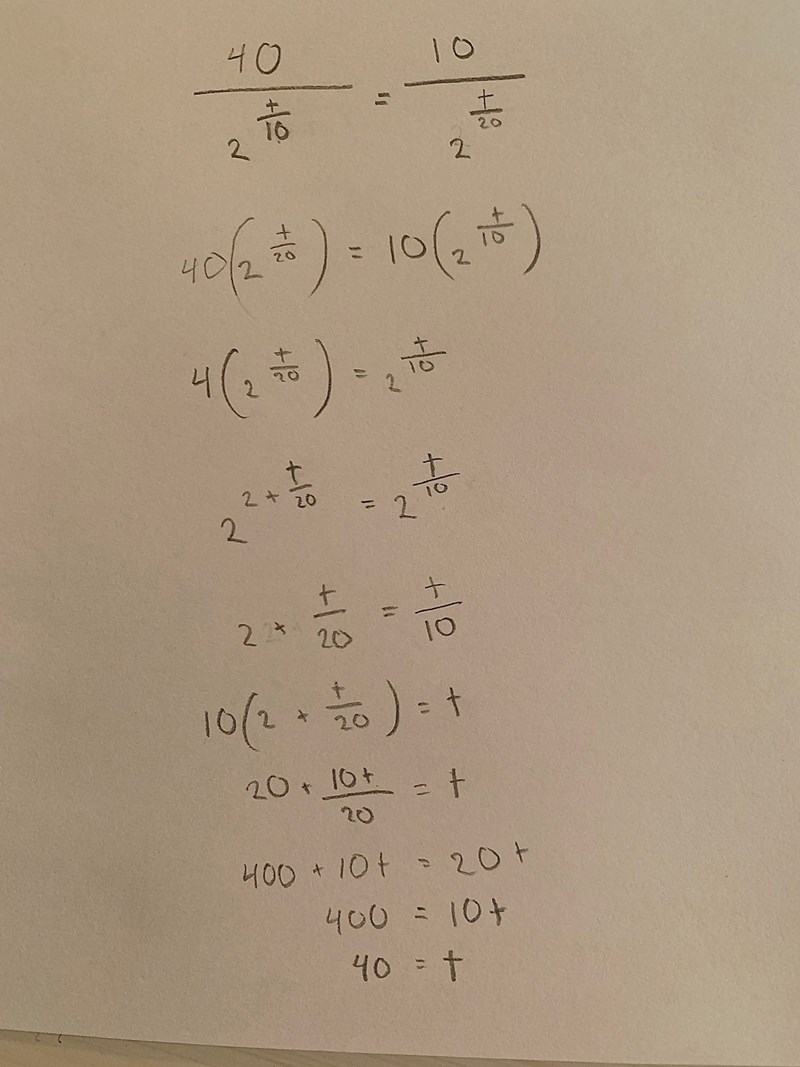 40/2^(t/10) = 10/2^(t/20)
40(2^(t/20)) = 10(2^(t/10))
4(2^(t/20)) = 2^(t/10)
2^(2 + t/20) = 2^(t/10)
2 + t/20 = t/10
10(2 + t/20) = t
20 + 10t/20 = t
400 + 10t = 20t
400 = 10t
40 = t